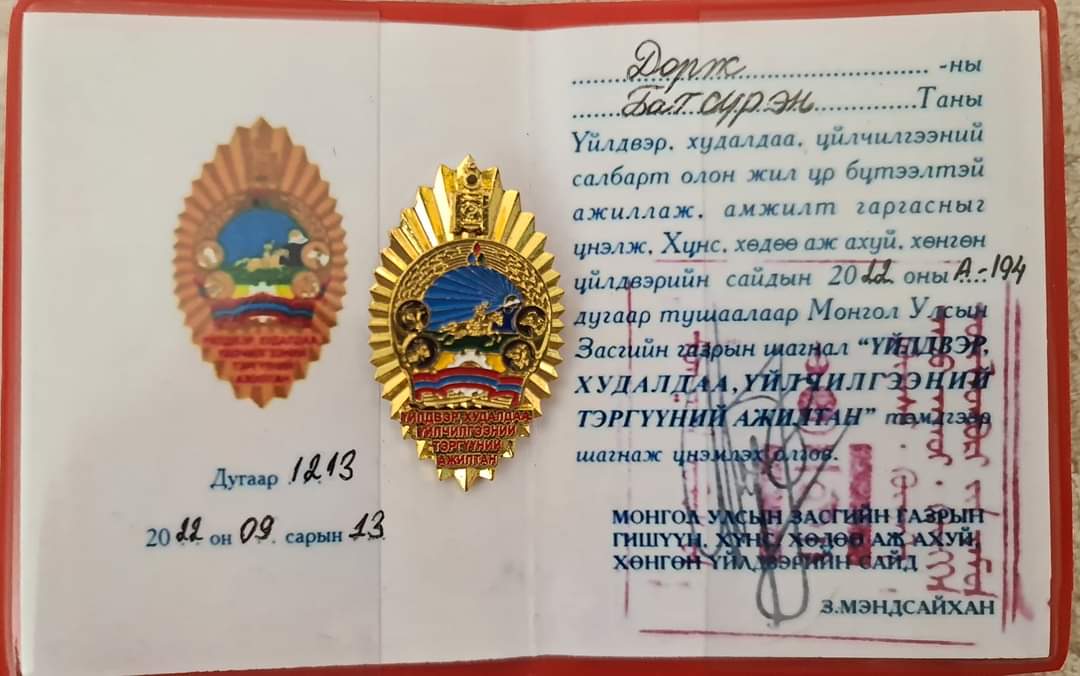 ҮЙЛДВЭР ХУДАЛДАА
ҮЙЛЧИЛГЭЭНИЙ
ТЭРГҮҮНИЙ
АЖИЛТАН
Дугаар 1213
2022 он 09 сарын 13
ҮЙЛДВЭР ХУДАЛДАА
ҮЙЛЧИЛГЭЭНИЙ
ТЭРГҮҮНИЙ
АЖИЛТАН
Дорж -ны
Батсүрэн Таны
Үйлдвэр, худалдаа, цйлчилгээний
салбарт олон жил цр бцтээлтэй
ажиллаж, амжилт гаргасныг
цнэлж, Хцнс, хөдөө аж ахуй, хөнгөн
цйлдвэрийн сайдын 2022 оны А-194
дугаар тушаалаар Монгол Улсын
Засгийн газрын шагнал “ҮЙЛДВЭР,
ХУДАЛДАА, ҮЙЛЧИЛГЭЭНИЙ
ТЭРГҮҮНИЙ АЖИЛТАН” тэмдгээр
шагнаж цнэмлэх олгов.
МОНГОЛ УЛСЫН ЗАСГИЙН ГАЗРЫН
ГИШҮҮН, ХҮНС, ХӨДӨӨ АЖ АХУЙ,
ХӨНГӨН ҮЙЛДВЭРИЙН САЙД
З.МЭНДСАЙХАН